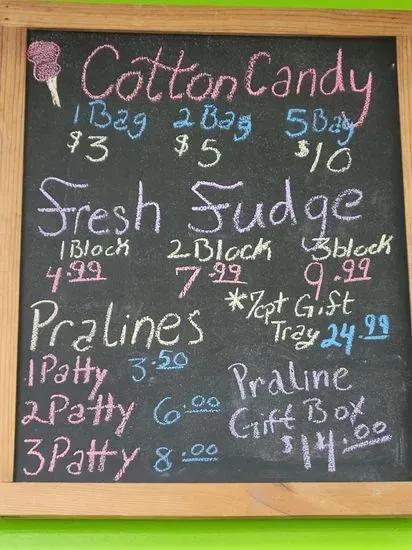 Cotton Candy
1 Bag 2 Bag 5 Bag
$3 $5 $10
Fresh Fudge
1 Block 2 Block 3 block
4.99 7.99 9.99
*7cpt Gift
Tray 24.99
Pralines
1 Patty 3.50
2 Patty 6.00
3 Patty 8.00
Praline
Gift Box
$14.00